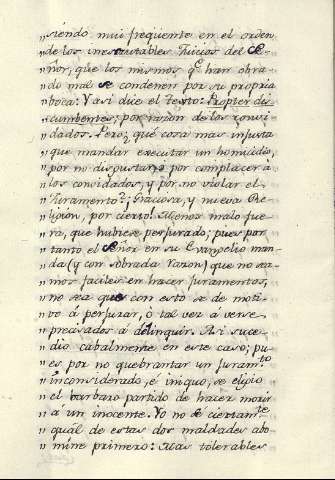 „ siendo mui freqüente en el orden
„ de los inescrutables Juicios del Se-
„ ñor, que los mismos q.e han obra-
„ do mal se condenen por su propria
„ boca: Y asi dice el texto: Propter dis
„ cumbentes; por razon de los convi-
„ dados. Pero ¿què cosa mas injusta
„ que mandar executar un homicidio,
„ por no disgustar, por complacer a
„ los convidados, y por no violar el
„ Juramento? ¡Graciosa, y nueva Re-
„ ligion, por cierto! Menos malo fue-
„ ra, que hubiese perjurado; pues por
„ tanto el Señor en su Evangelio man-
„ da (y con sobrada razon) que no sea-
„ mos faciles en hacer juramentos,
„ no sea que con esto se de moti-
„ vo á perjurar, ò tal vez á verse
„ precisados á delinquir. Asi suce-
„ dio cabalmente en este caso; pu-
„ es por no quebrantar un juram.to
„ inconsiderado, è iniquo, se eligio
„ el barbaro partido de hacer morir
„ a un inocente. Yo no sé ciertam.te
„ quál de estas dos maldades abo-
„ mine primero: Mas tolerables